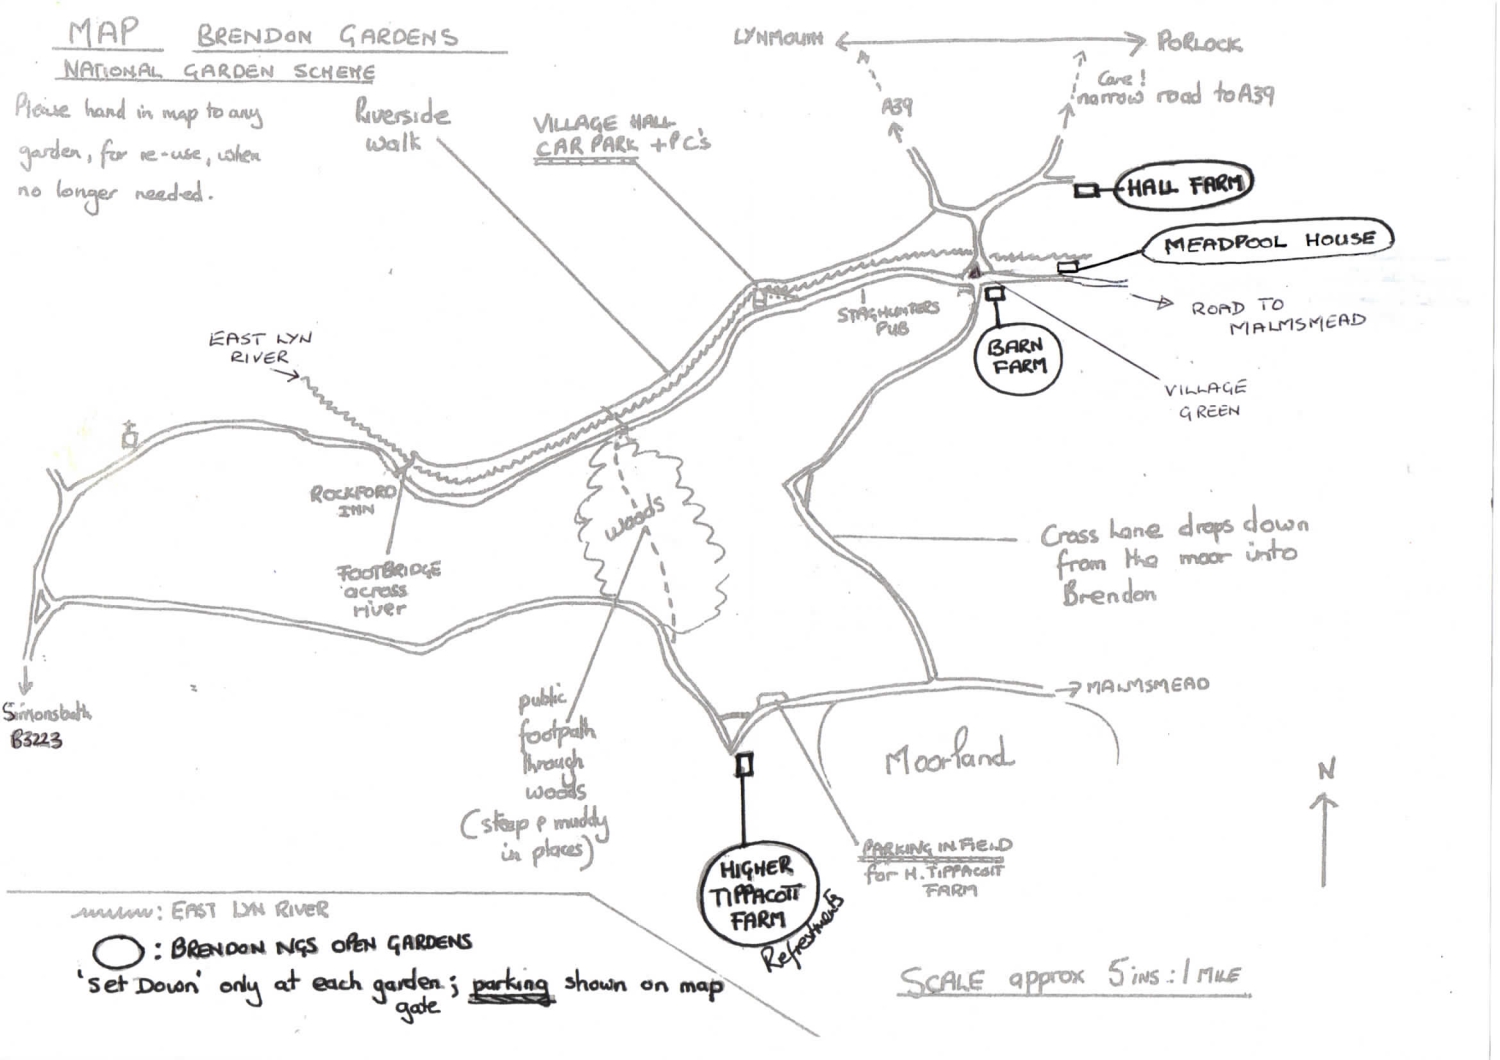 MAP BRENDON GARDENS
NATIONAL GARDEN SCHEME
Please hand in map to any
garden, for re-use, when
no longer needed.
Riverside
walk
VILLAGE HALL
CAR PARK + PC's
LYNMOUTH
PORLOCK
Care!
narrow road to A39
A39
HALL FARM
MEADPOOL HOUSE
ROAD TO
MALMSMEAD
STAGHUNTERS
PUB
BARN
FARM
VILLAGE
GREEN
EAST LYN
RIVER
ROCKFORD
INN
FOOTBRIDGE
across
river
woods
Cross Lane drops down
from the moor into
Brendon
Simonsbath
B3223
public
footpath
through
woods
(steep & muddy
in places)
MALMSMEAD
Moorland
N
PARKING IN FIELD
for H. TIPPACOTT
FARM
HIGHER
TIPPACOTT
FARM
Refreshments
: EAST LYN RIVER
: BRENDON NGS OPEN GARDENS
'Set Down' only at each garden; parking shown on map
gate
SCALE approx 5 ins : 1 MILE